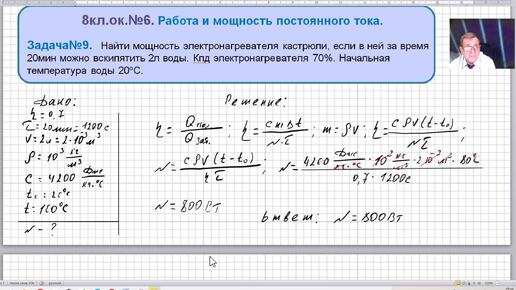 8кл.ок.№6. Работа и мощность постоянного тока.
Задача№9. Найти мощность электронагревателя кастрюли, если в ней за время
20мин можно вскипятить 2л воды. Кпд электронагревателя 70%. Начальная
температура воды 20°С.
Дано:
η = 0,7
τ = 20мин = 1200с
V = 2л = 2·10⁻³м³
ρ = 10³ кг/м³
c = 4200 Дж/кг·°С
t₀ = 20°С
t = 100°С
N - ?
Решение:
η = Qпол/Qзат. ; η = cmΔt/Nτ ; m = ρV ; η = cρV(t-t₀)/Nτ ;
N = cρV(t-t₀)/ητ ; N = 4200 Дж/кг·°С · 10³ кг/м³ · 2·10⁻³ м³ · 80°С / 0,7 · 1200с
N = 800Вт
Ответ: N = 800Вт